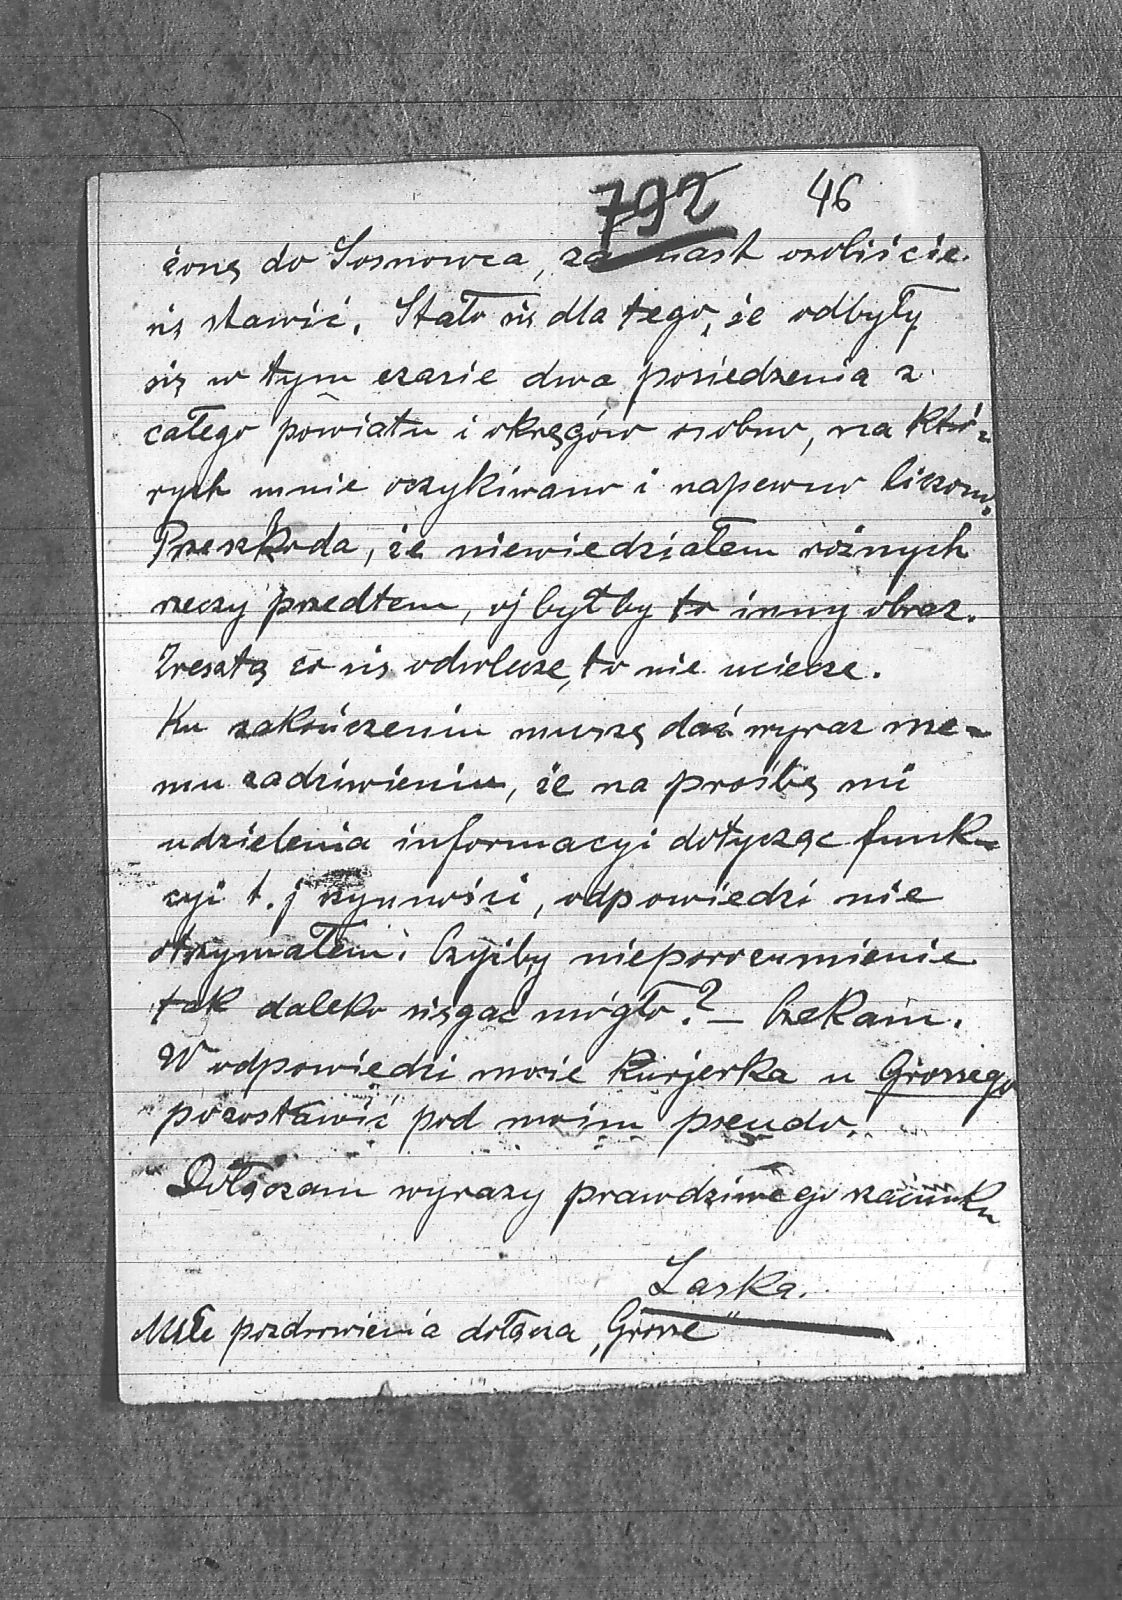 792 46
żonę do Sosnowca, zamiast osobiście
się stawić. Stało się dla tego, że odbyły
się w tym czasie dwa posiedzenia z
całego powiatu i okręgów osobno, na któ-
rych mnie oczykiwano i napewno liczono.
Przeszkoda, że niewiedziałem różnych
rzeczy przedtem, oj byłby to inny obraz.
Zresztą co się odwlecze, to nie uciecze.
Ku zakończeniu muszę dać wyraz me-
mu zadziwieniu, że na prośbę mi
udzielenia informacyi dotycząc funk-
cyi t. j czynności, odpowiedzi nie
otrzymałem. Czyżby nieporozumienie
tak daleko sięgać mógło? – Czekam.
W odpowiedzi może kurjerka u Grossego
pozostawić pod moim pseudo.
Dołączam wyrazy prawdziwego szacunku
Laska.
Miłe pozdrowienia dołącza „Grosse"